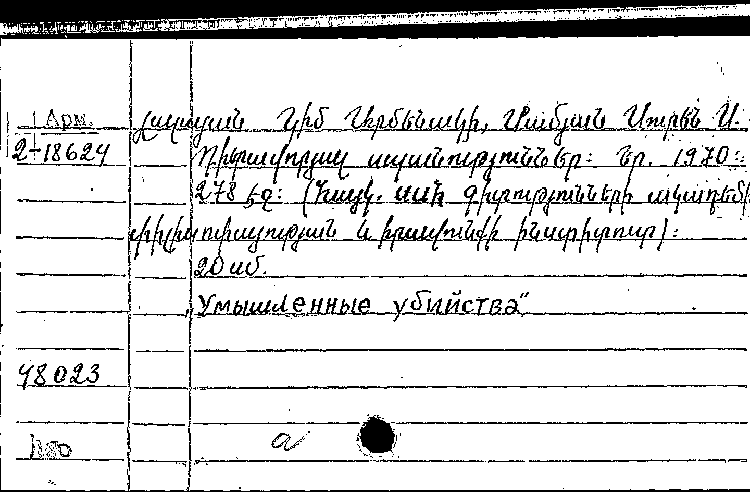 Арм.
2-18624
Ղազարյան Կիմ Արմենակի, Մամյան Սուրեն Ս.
Դիտավորյալ սպանություններ։ Եր. 1970։
278 էջ։ (Հայկ. ՍՍՀ գիտությունների ակադեմի
փիլիսոփայության և իրավունքի ինստիտուտ)։
20 սմ.
„Умышленные убийства"
48023
a